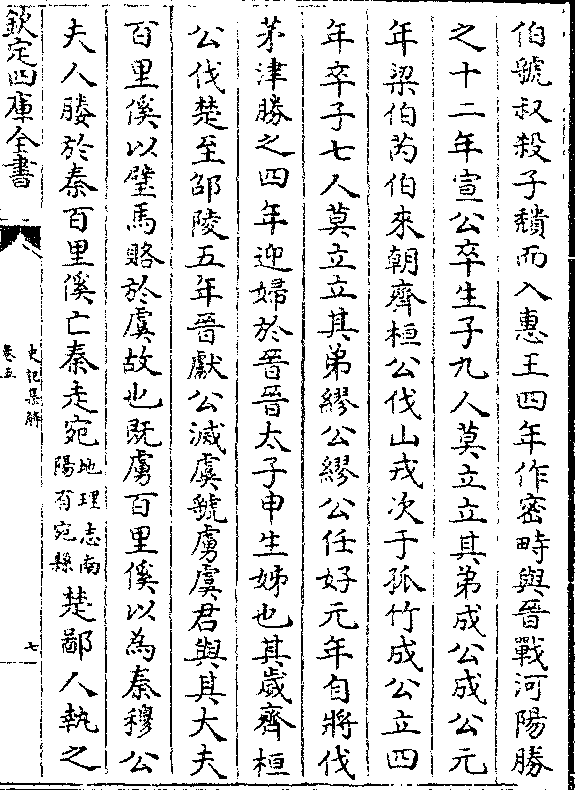 伯虢叔殺子頽而入惠王四年作密畤與晉戰河陽勝
之十二年宣公卒生子九人莫立立其弟成公成公元
年梁伯芮伯來朝齊桓公伐山戎次于孤竹成公立四
年卒子七人莫立立其弟繆公繆公任好元年自將伐
茅津勝之四年迎婦於晉晉太子申生姊也其歲齊桓
公伐楚至邵陵五年晉獻公滅虞虢虜虞君與其大夫
百里傒以璧馬賂於虞故也既虜百里傒以為秦穆公
夫人媵於秦百里傒亡秦走宛地理志南陽有宛縣楚鄙人執之
欽定四庫全書
史記集解
卷五
七